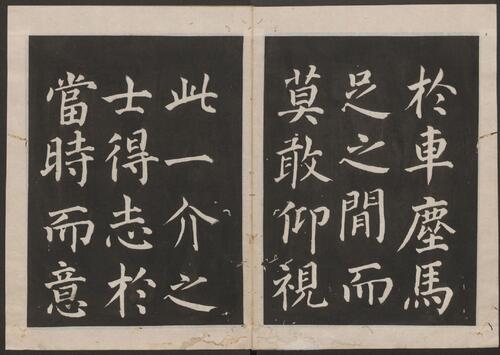 於車塵馬
足之間而
莫敢仰視
此一介之
士得志於
當時而意